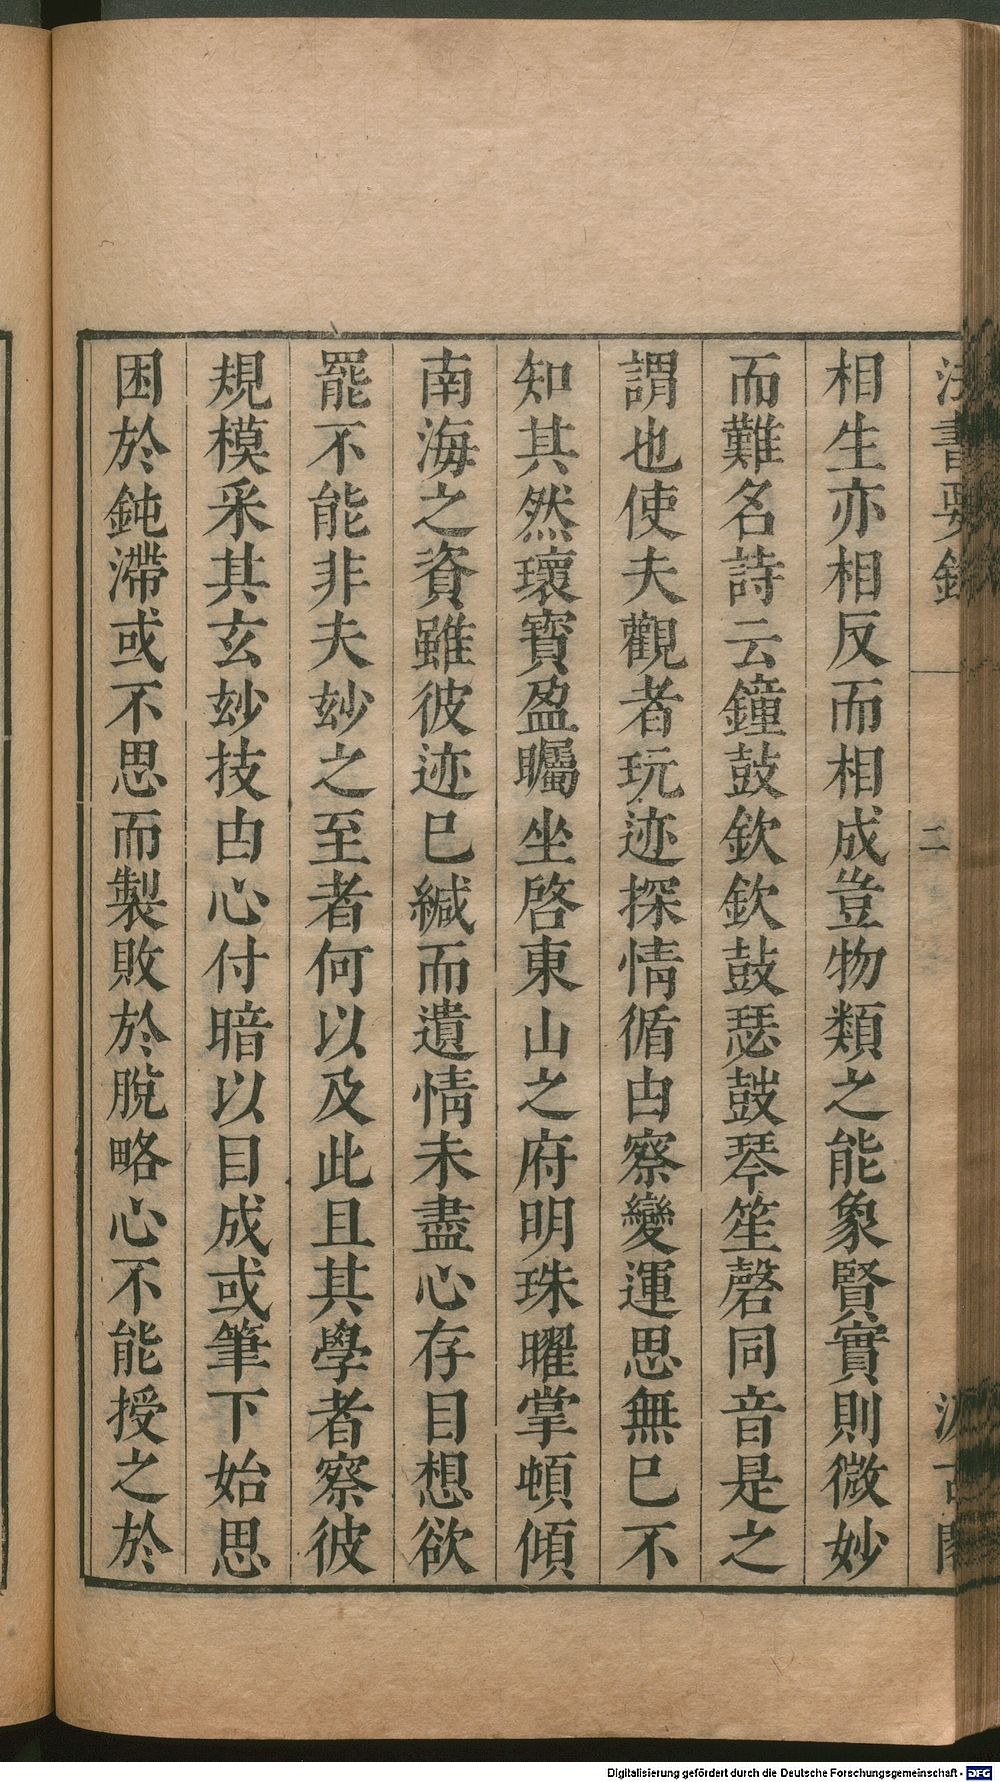 法書要錄
二
汲古閣
相生亦相反而相成豈物類之能象賢實則微妙
而難名詩云鐘鼓欽欽鼓瑟鼓琴笙磬同音是之
謂也使夫觀者玩迹探情循由察變運思無已不
知其然瓌寶盈矚坐啓東山之府明珠曜掌頓傾
南海之資雖彼迹已緘而遺情未盡心存目想欲
罷不能非夫妙之至者何以及此且其學者察彼
規模采其玄妙技由心付暗以目成或筆下始思
困於鈍滯或不思而製敗於脫略心不能授之於
Digitalisierung gefördert durch die Deutsche Forschungsgemeinschaft - DFG